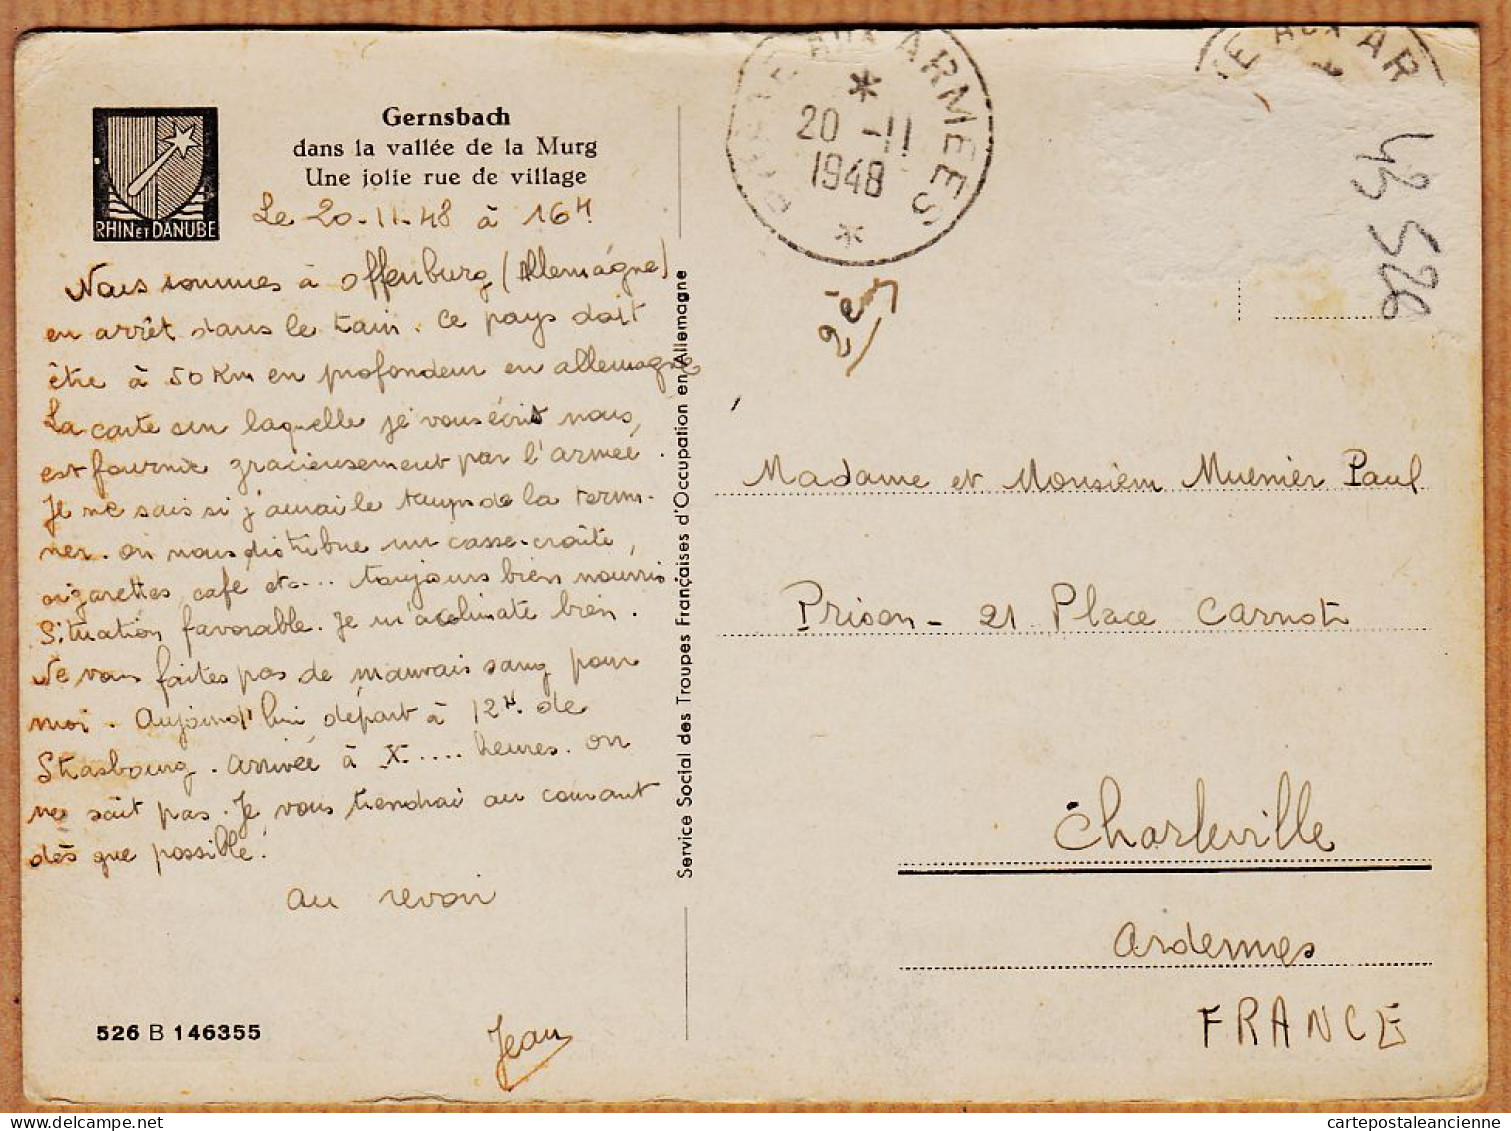 Gernsbach
dans la vallée de la Murg
Une jolie rue de village
RHIN ET DANUBE
Le 20-11-48 à 16H
Nous sommes à Offenburg (Allemagne)
en arrêt dans le train. Ce pays doit
être à 50 Km en profondeur en allemagne
La carte sur laquelle je vous écris nous,
est fournie gracieusement par l'armée.
Je ne sais si j'aurai le temps de la termi-
ner. on nous distribue un casse-croûte,
cigarettes, café etc... toujours bien nourris.
Situation favorable. Je m'aclimate bien.
Ne vous faites pas de mauvais sang pour
moi. Aujourd'hui départ à 12H. de
Strasbourg. Arrivée à X.... heures. on
ne sait pas. Je vous tiendrai au courant
dès que possible.
au revoir
Jean
526 B 146355
Service Social des Troupes Françaises d'Occupation en Allemagne
POSTE AUX ARMÉES
20 -11
1948
TE AUX AR
43 526
Madame et Monsieur Muenier Paul
Prison - 21 Place Carnot
Charleville
Ardennes
FRANCE
cartepostaleancienne.com